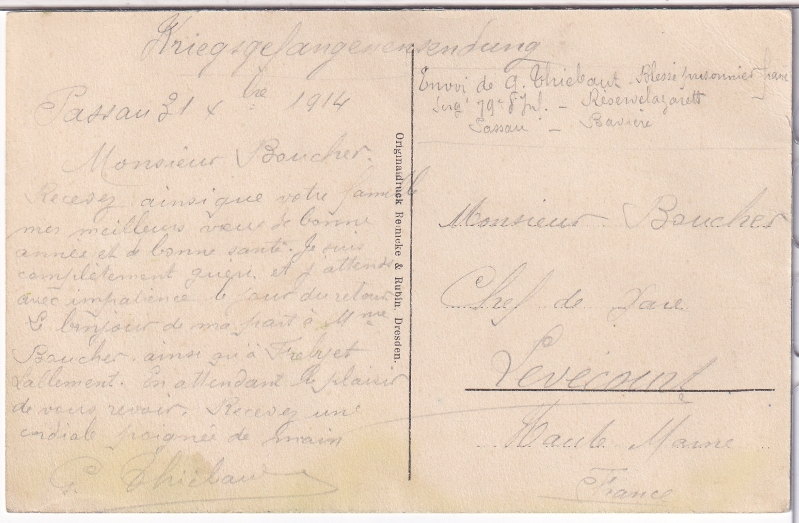 Kriegsgefangenensendung
Envoi de G. Thiebaut Blessé prisonnier
79e Reservelazarett
Passau – Bavière
Passau 31 Xbre 1914
Monsieur Boucher.
Recevez ainsi que votre famille
mes meilleurs vœux de bonne
année et de bonne santé. Je suis
complètement guéri et j'attends
avec impatience le jour du retour
bonjour de ma part à Mme
Boucher ainsi qu'à
Lallement. En attendant le plaisir
de vous revoir. Recevez une
cordiale poignée de main
G. Thiebaut
Originaldruck Reinicke & Rubin, Dresden.
Monsieur Boucher
Chef de Gare
Levécourt
Haute Marne
France